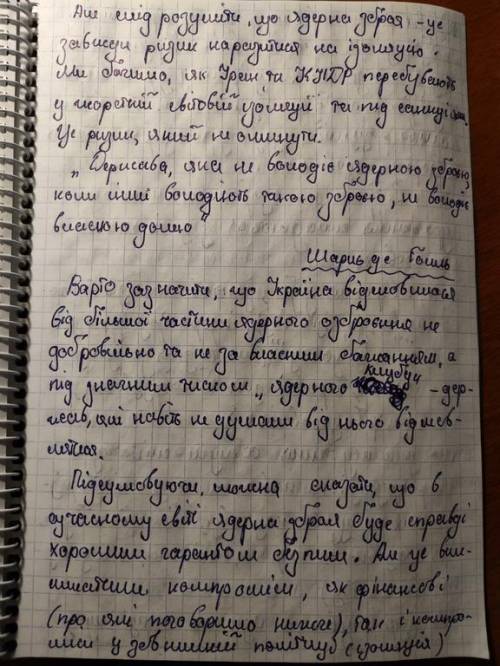 Але слід розуміти, що ядерна зброя - це
завжди ризик наразитися на ізоляцію.
Ми бачимо, як Іран та КНДР перебувають
у жорсткій світовій ізоляції та під санкціями.
Це ризик, який не оминути.
„Держава, яка не володіє ядерною зброєю,
коли інші володіють такою зброєю, не володіє
власною долею"
Шарль де Голль
Варто зазначити, що Україна відмовилася
від більшої частини ядерного озброєння не
добровільно та не за власним бажанням, а
під значним тиском „ядерного клубу" - дер-
жав, які навіть не думали від нього відмов-
лятися.
Підсумовуючи, можна сказати, що в
сучасному світі ядерна зброя буде справді
хорошим гарантом безпеки. Але це вим-
агатиме компромісів, як фінансові
(про які поговоримо нижче), так і компро-
міси у зовнішній політиці (ізоляція)